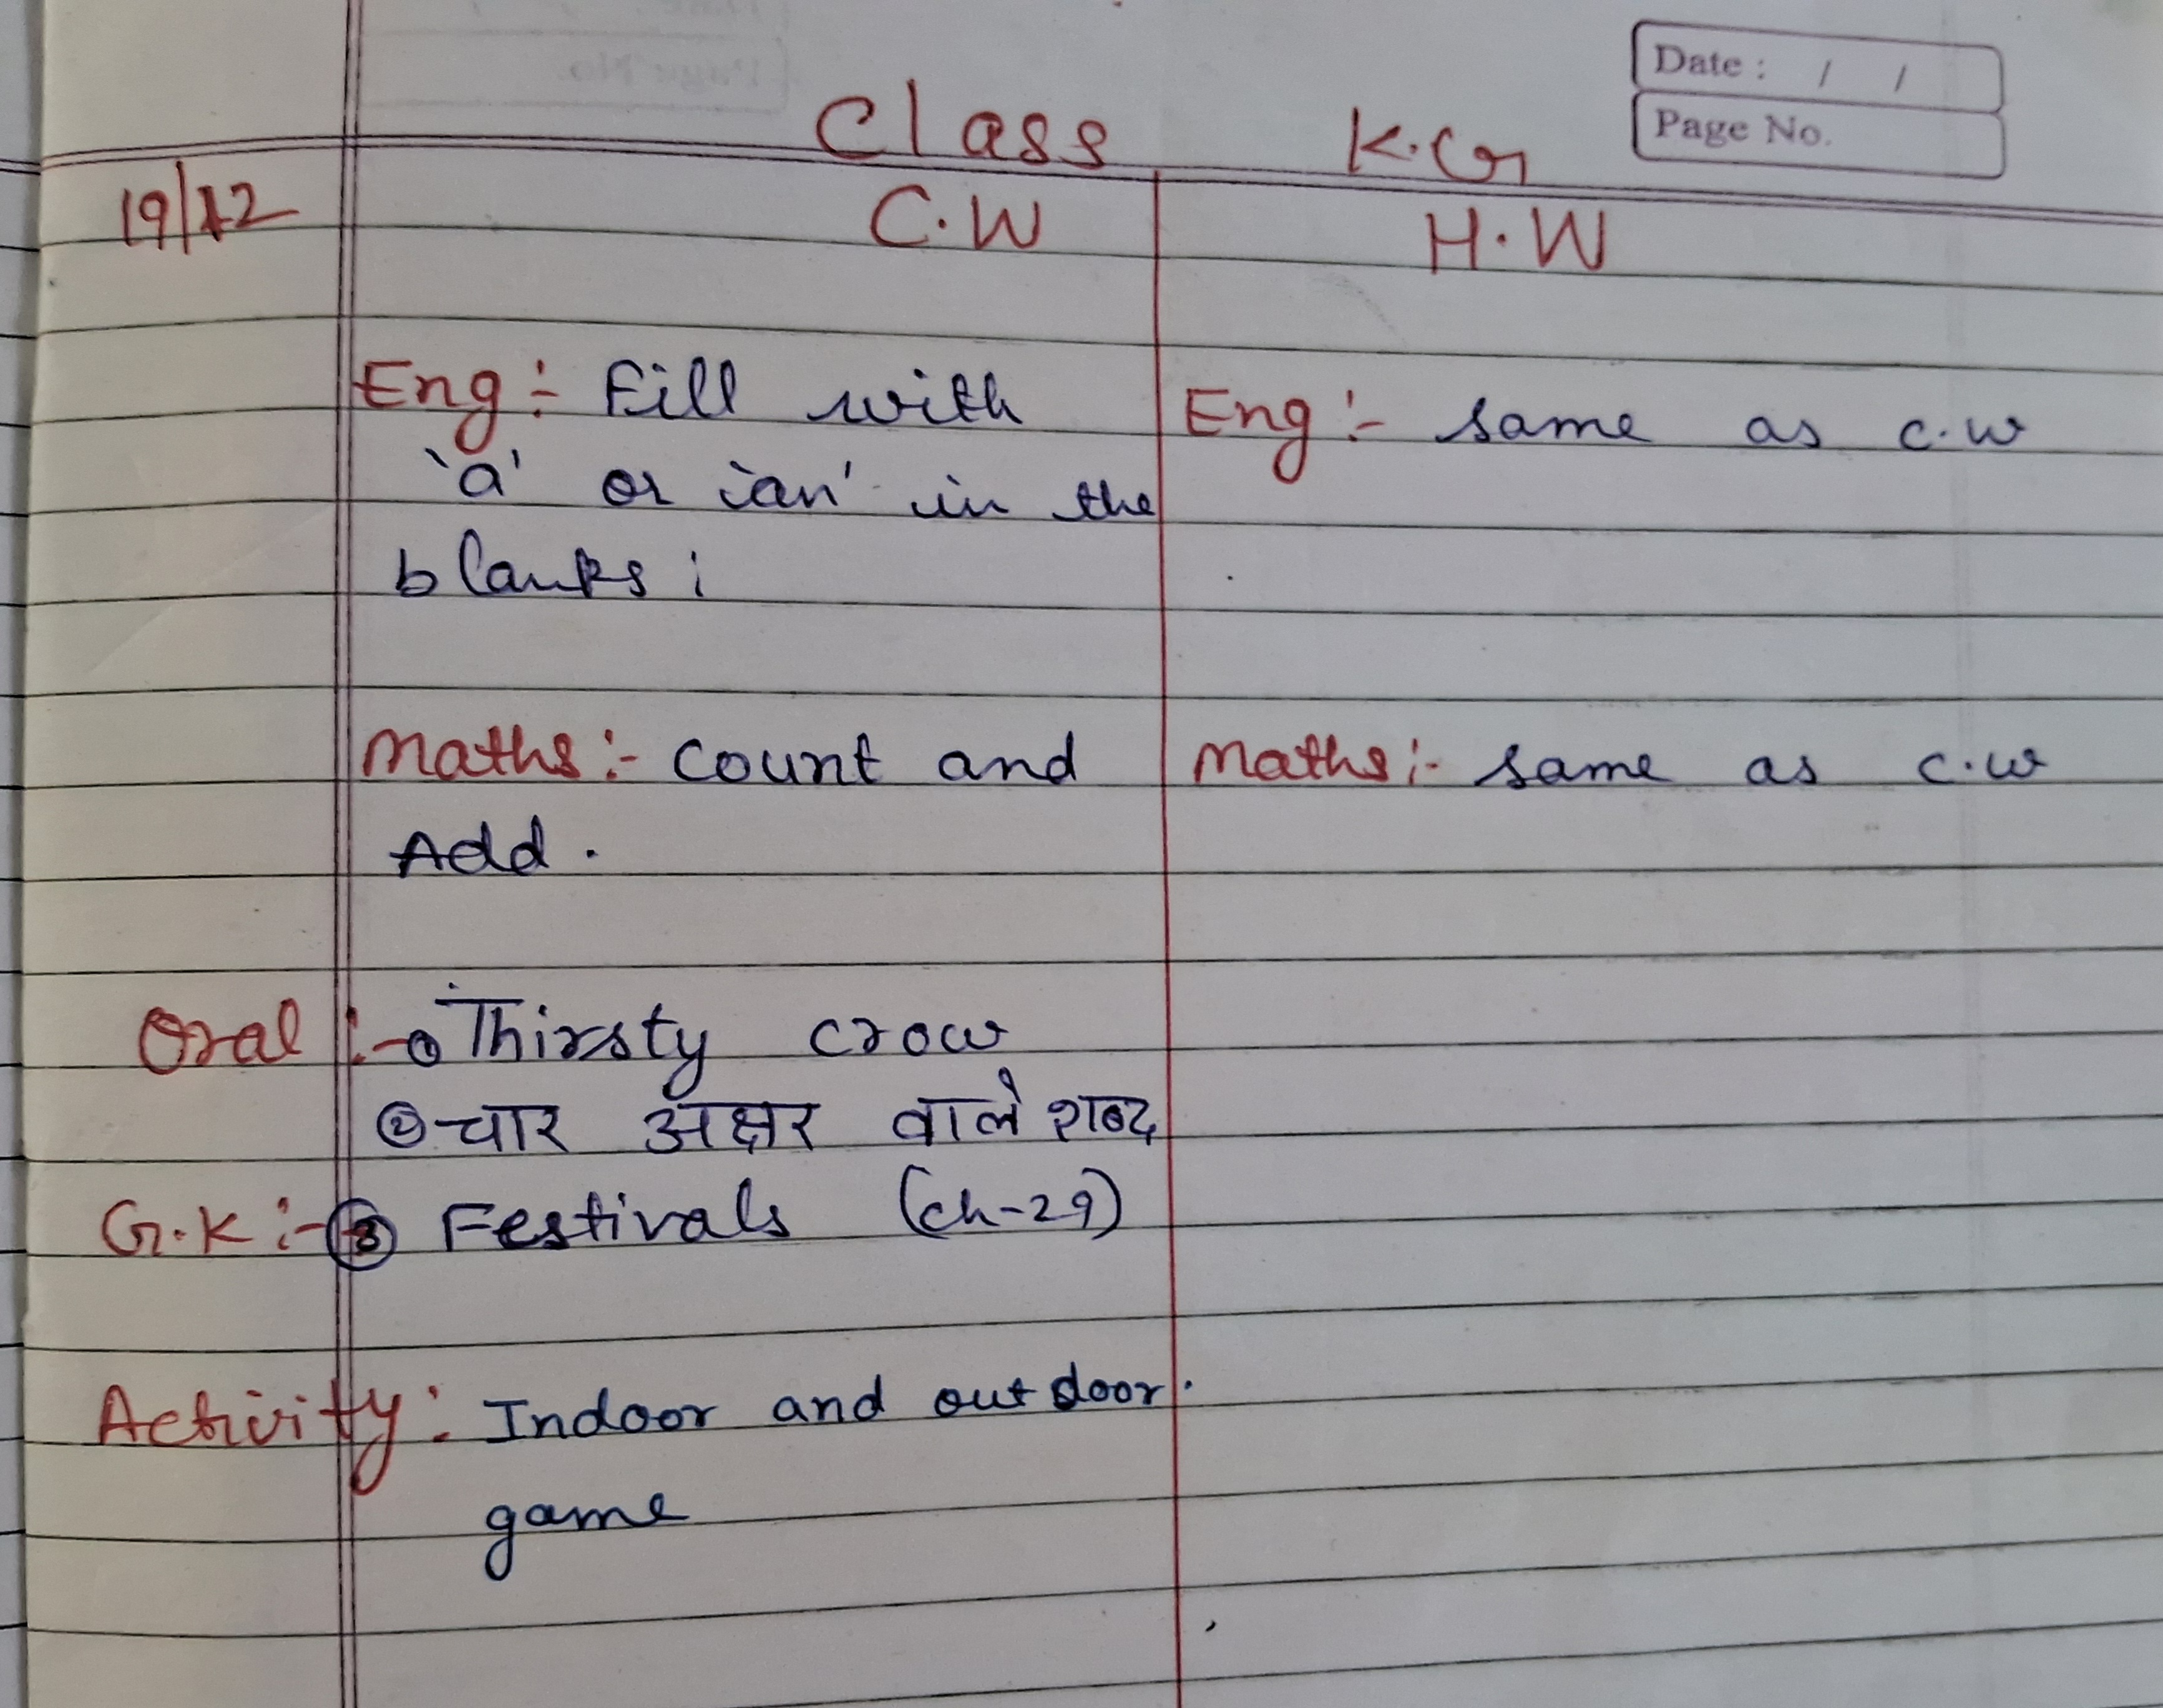 Date : / /
Page No.
Class K.G
19/12 C.W H.W
Eng :- Fill with Eng :- same as c.w
'a' or 'an' in the
blanks :
Maths :- count and Maths :- same as c.w
Add .
Oral :- ① Thirsty crow
② चार अक्षर वाले शब्द
G.K :- ③ Festivals (ch-29)
Activity : Indoor and outdoor.
game